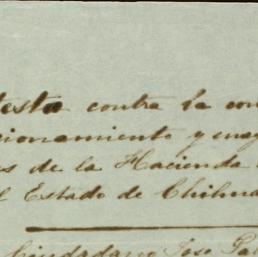 testa contra la con
cionamiento y enag
es de la Hacienda
l Estado de Chihua
Ciudadano Jose Pa